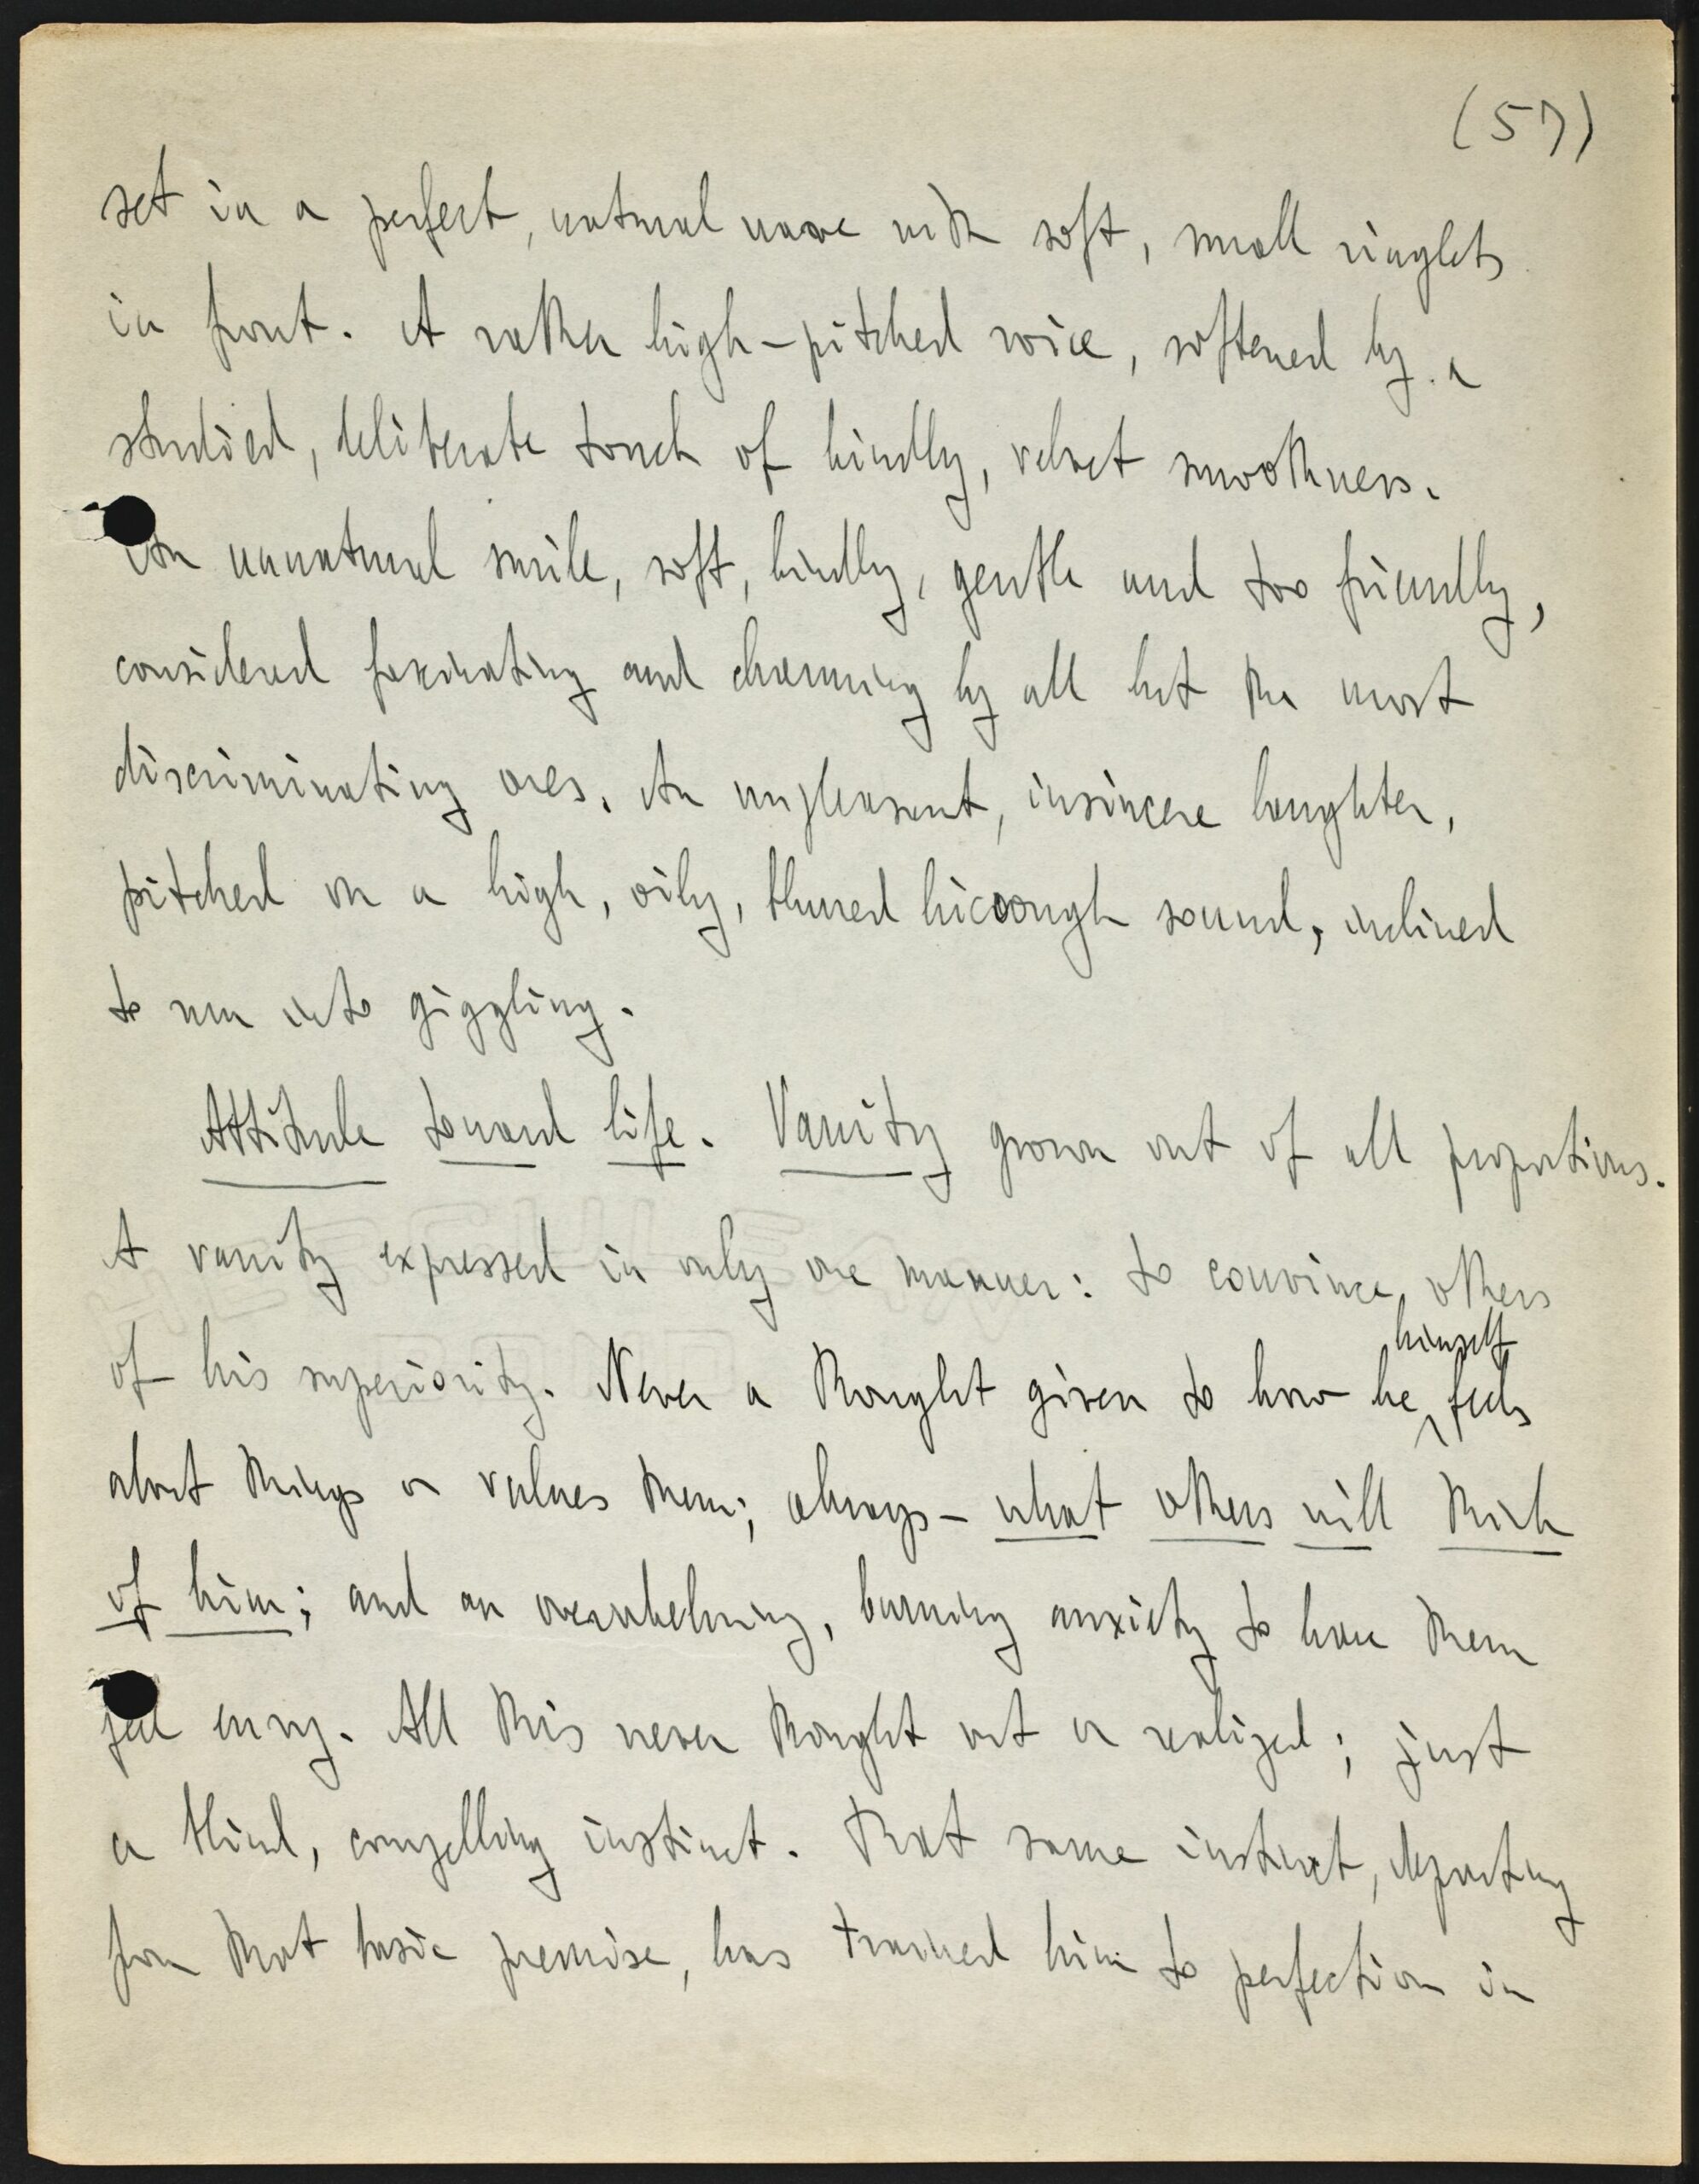 (57)
set in a perfect, natural wave with soft, small ringlets
in front. A rather high-pitched voice, softened by a
studied, deliberate touch of kindly, velvet smoothness.
An unnatural smile, soft, kindly, gentle and too friendly,
considered fascinating and charming by all but the most
discriminating ones. An unpleasant, insincere laughter,
pitched on a high, oily, blurred hiccough sound, inclined
to run into giggling.
Attitude toward life. Vanity grown out of all proportions.
A vanity expressed in only one manner: to convince others
of his superiority. Never a thought given to how he himself feels
about things or values them; always - what others will think
of him; and an overwhelming, burning anxiety to have them
feel envy. All this never thought out or realized; just
a blind, compelling instinct. That same instinct, departing
from that basic premise, has trained him to perfection in